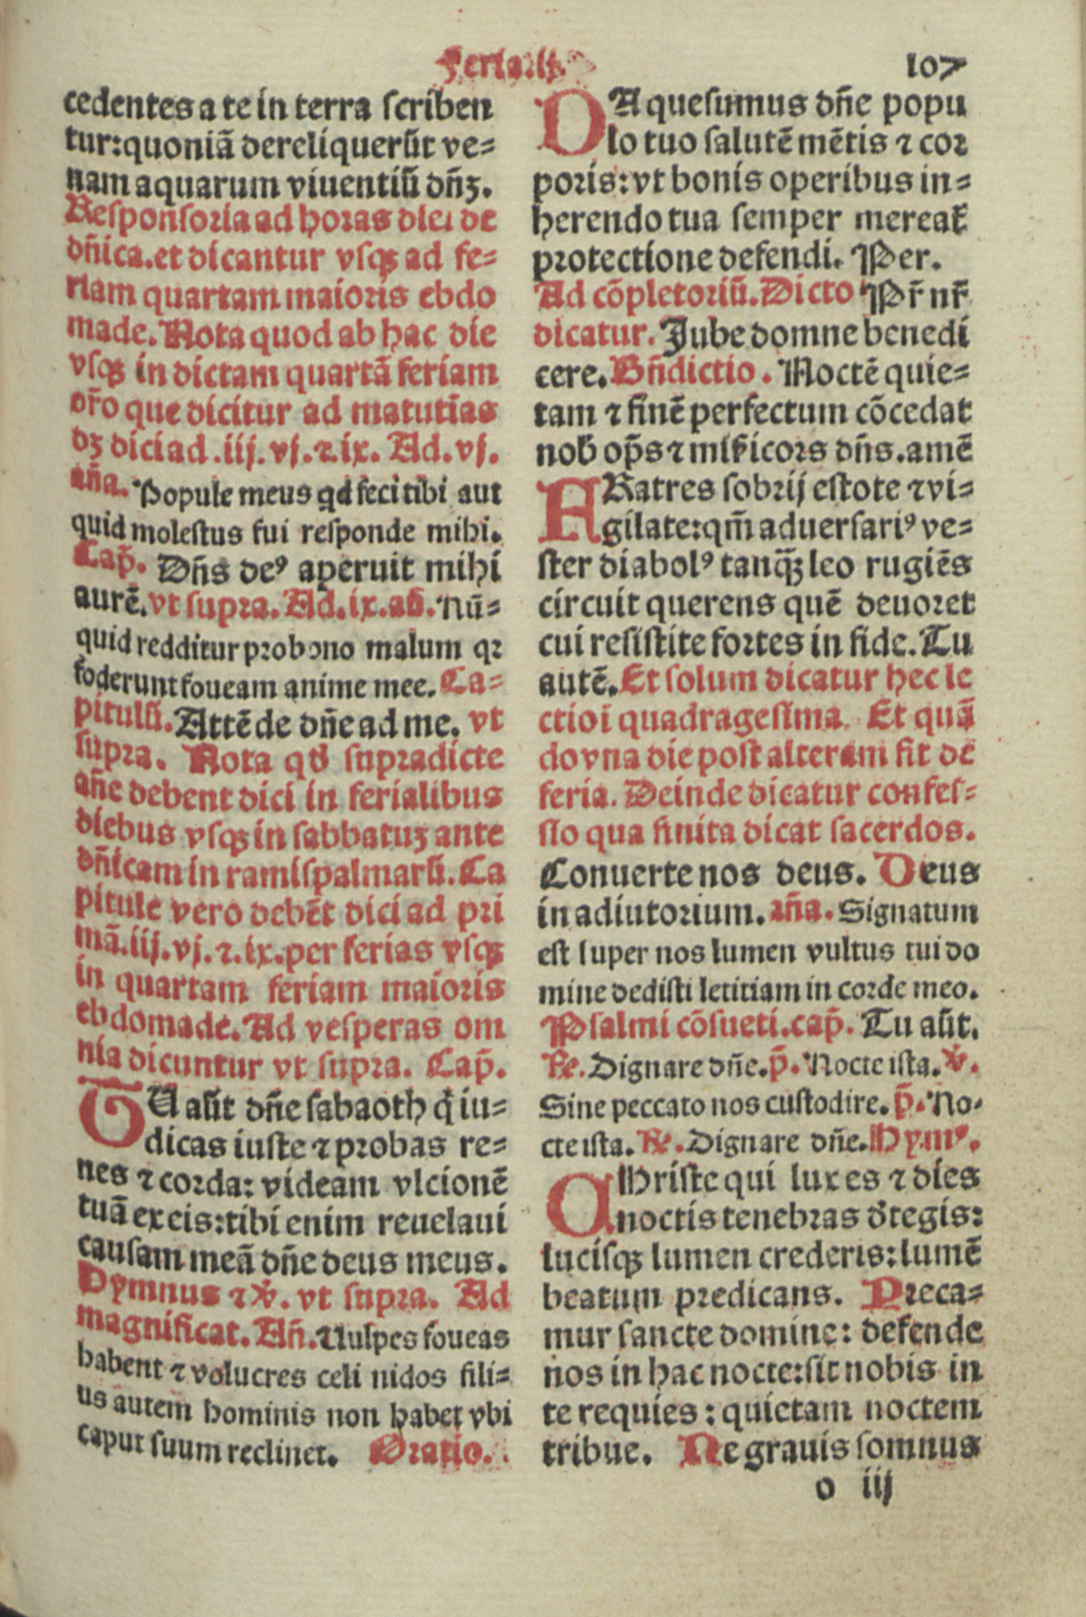 Feria.ij.
107
cedentes a te in terra scriben
tur:quoniã dereliquerũt ve=
nam aquarum viuentiũ dñꝫ.
Responsoria ad horas diei de
dñica.et dicantur vsqꝫ ad fe=
riam quartam maioris ebdo
made.Nota quod ab hac die
vsqꝫ in dictam quartã feriam
or̃o que dicitur ad matutĩas
dꝫ dici ad .iij. vj. ⁊.ix. Ad. vj.
aña. Popule meus qd feci tibi aut
quid molestus fui responde mihi.
Cap̃. Dñs deꝰ aperuit mihi
aurẽ.vt supra. Ad.ix.añ. Nũ=
quid redditur pro bono malum qꝛ
foderunt foueam anime mee. Ca=
pitulũ. Attẽde dñe ad me. vt
supra. Nota qď supradicte
añe debent dici in ferialibus
diebus vsqꝫ in sabbatuꝫ ante
dñicam in ramispalmarũ. Ca
pitule vero debẽt dici ad pri
mã.iij.vj.⁊.ix.per ferias vsqꝫ
in quartam feriam maioris
ebdomade. Ad vesperas om
nia dicuntur vt supra. Cap̃.
TU aũt dñe sabaoth q̃ iu=
dicas iuste ⁊ probas re=
nes ⁊ corda: videam vlcionẽ
tuã ex eis:tibi enim reuelaui
causam meã dñe deus meus.
Hymnus ⁊ ℣. vt supra. Ad
magnificat. Añ. Uulpes foueas
habent ⁊ volucres celi nidos fili=
us autem hominis non habet vbi
caput suum reclinet. Oratio.
DA quesumus dñe popu
lo tuo salutẽ mẽtis ⁊ coꝛ
poris:vt bonis operibus in=
herendo tua semper mereat̃
protectione defendi. Per.
Ad cõpletoriũ. Dicto Pr̃ nr̃
dicatur. Jube domne benedi
cere. Bñdictio. Noctẽ quie=
tam ⁊ finẽ perfectum cõcedat
nob̃ op̃s ⁊ mis̃icors dñs.amẽ
FRatres sobrij estote ⁊ vi=
gilate:qm̃ aduersariꝰ ve=
ster diabolꝰ tanqꝫ leo rugiẽs
circuit querens quẽ deuoret
cui resistite fortes in fide. Tu
autẽ. Et solum dicatur hec le
ctio ĩ quadragesima. Et quã
do vna die post alteram fit de
feria. Deinde dicatur confes=
sio qua finita dicat sacerdos.
Conuerte nos deus. Deus
in adiutorium. aña. Signatum
est super nos lumen vultus tui do
mine dedisti letitiam in corde meo.
Psalmi cõsueti. cap̃. Tu aũt.
℟. Dignare dñe. p̃. Nocte ista. ℣.
Sine peccato nos custodire. p̃. No=
cte ista. ℟. Dignare dñe. Hymꝰ.
CHriste qui lux es ⁊ dies
noctis tenebras d̃tegis:
lucisqꝫ lumen crederis:lumẽ
beatum predicans. Preca=
mur sancte domine: defende
nos in hac nocte:sit nobis in
te requies: quietam noctem
tribue. Ne grauis somnus
o iij